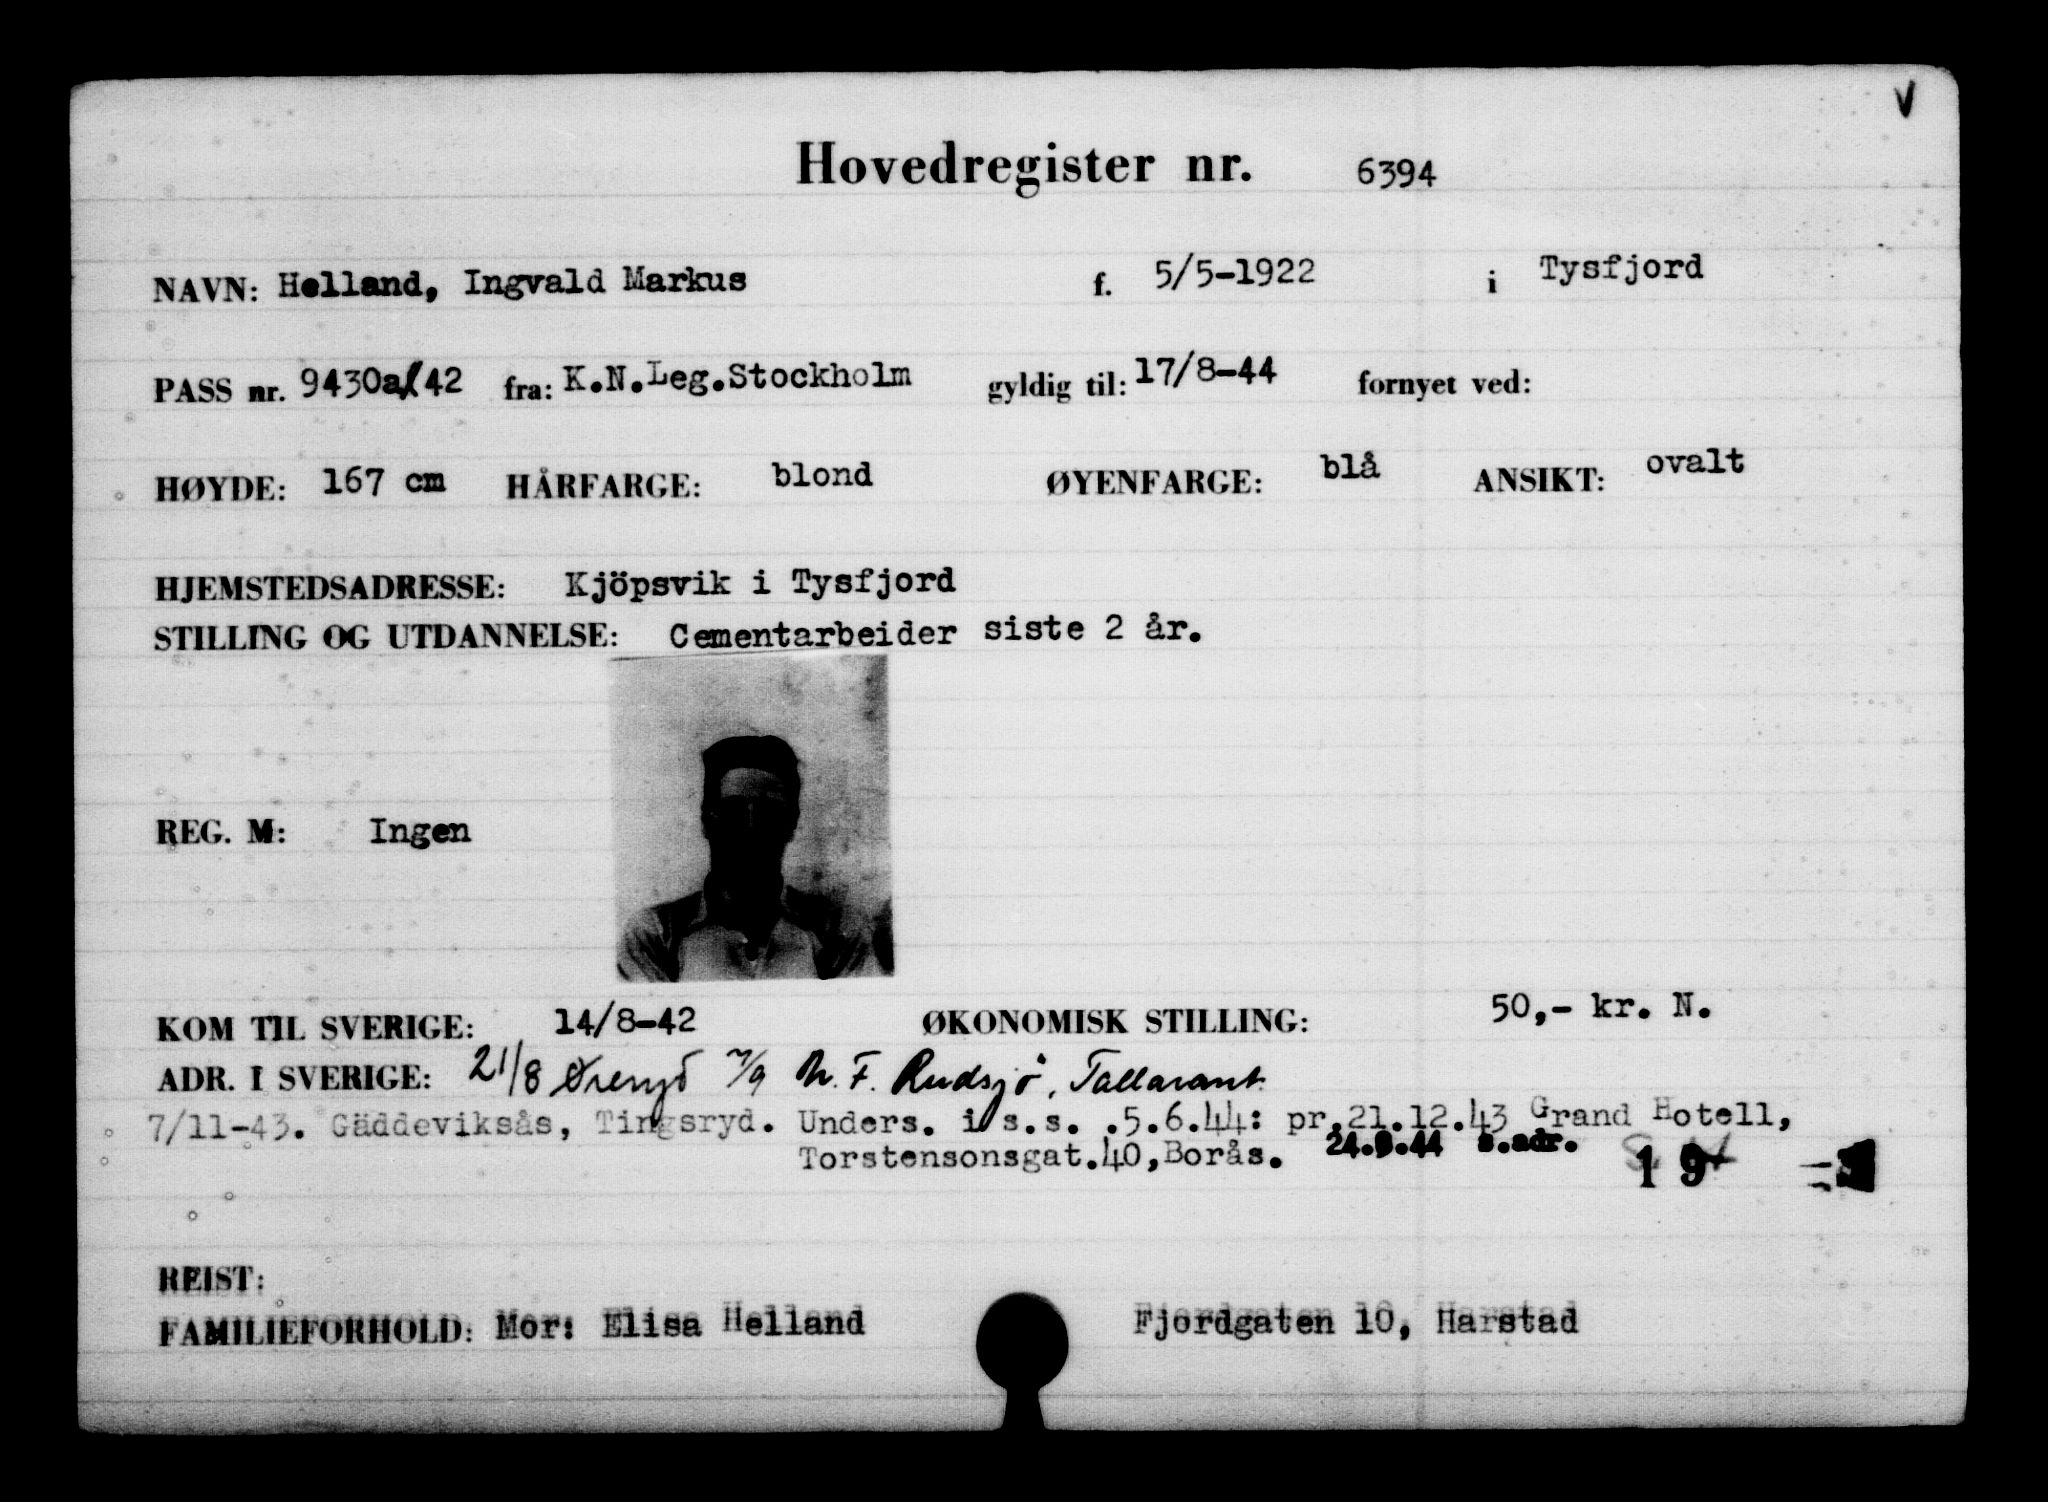 V
Hovedregister nr. 6394
NAVN: Helland, Ingvald Markus f. 5/5-1922 i Tysfjord
PASS nr. 9430a/42 fra: K.N.Leg.Stockholm gyldig til: 17/8-44 fornyet ved:
HØYDE: 167 cm HÅRFARGE: blond ØYENFARGE: blå ANSIKT: ovalt
HJEMSTEDSADRESSE: Kjöpsvik i Tysfjord
STILLING OG UTDANNELSE: Cementarbeider siste 2 år.
REG. M: Ingen
KOM TIL SVERIGE: 14/8-42 ØKONOMISK STILLING: 50,- kr. N.
ADR. I SVERIGE: 21/8 Øreryd 7/9 N. F. Rudsjö, Tallåsant
7/11-43. Gäddeviksås, Tingsryd. Unders. i s.s. .5.6.44: pr.21.12.43 Grand Hotell,
Torstensonsgat.40,Borås. 24.9.44 s.adr. 19
REIST:
FAMILIEFORHOLD: Mor: Elisa Helland Fjordgaten 10, Harstad